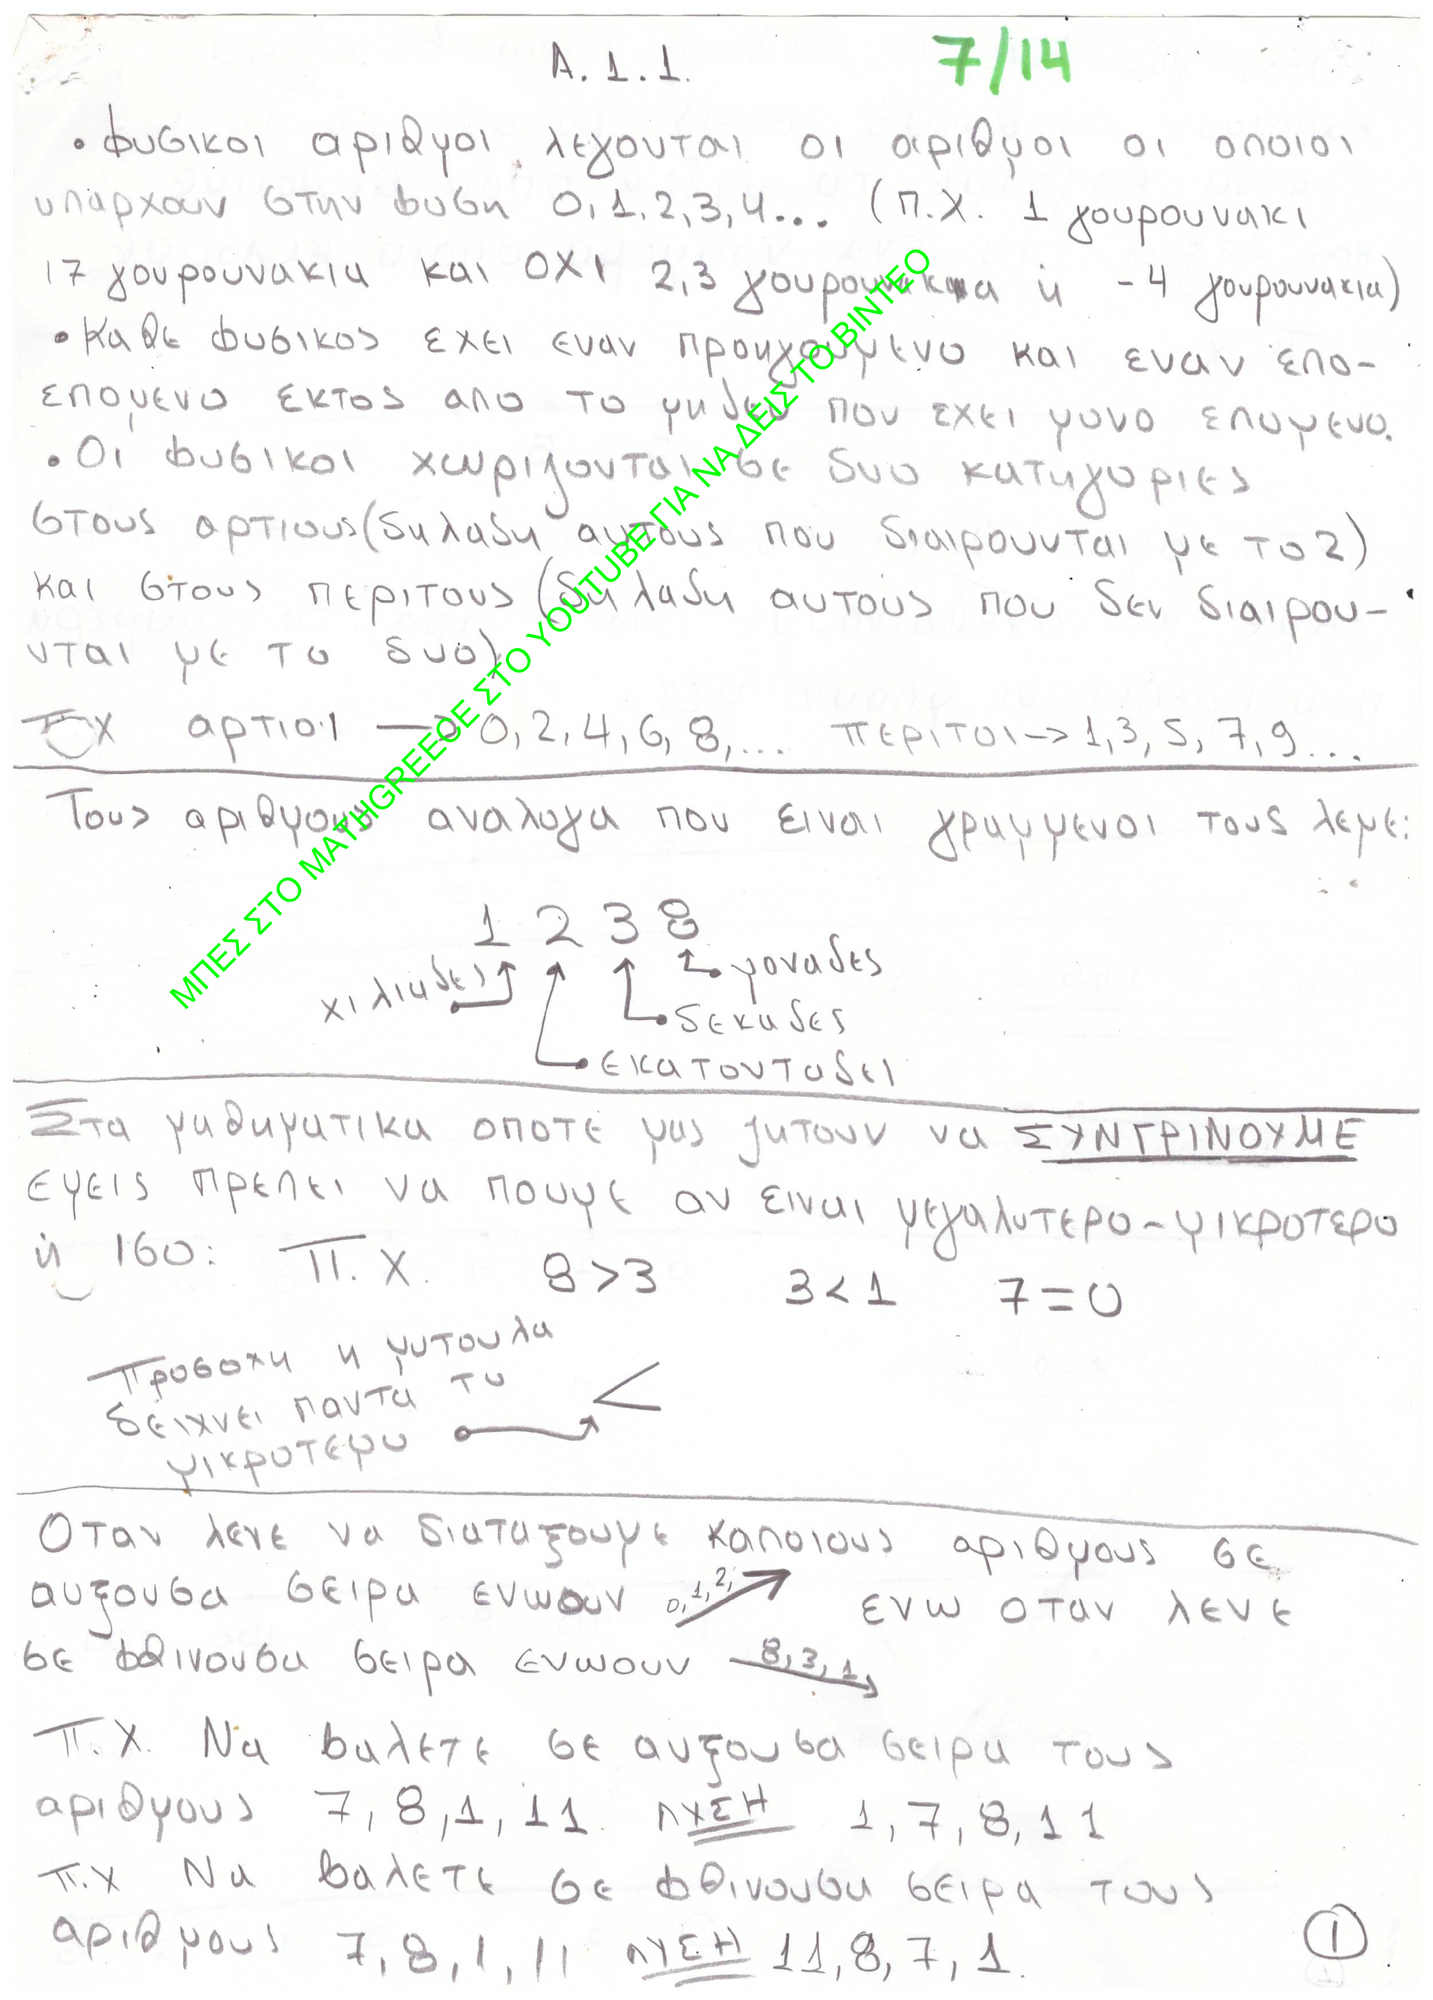 Α.1.1. 7/14
• Φυσικοι αριθμοι λεγονται οι αριθμοι οι οποιοι
υπαρχουν στην φυση 0,1,2,3,4... (π.χ. 1 γουρουνακι
17 γουρουνακια και ΟΧΙ 2,3 γουρουνακια ή -4 γουρουνακια)
• Καθε φυσικος εχει εναν προηγουμενο και εναν επο-
επομενο εκτος απο το μηδεν που εχει μονο επομενο.
• Οι φυσικοι χωριζονται σε δυο κατηγοριες
στους αρτιους(δηλαδη αυτους που διαιρουνται με το 2)
και στους περιτους (δηλαδη αυτους που δεν διαιρου-
νται με το δυο)
ΠΧ αρτιοι → 0,2,4,6,8,... περιτοι → 1,3,5,7,9...
Τους αριθμους αναλογα που ειναι γραμμενοι τους λεμε:
1 2 3 8
μοναδες
χιλιαδες
δεκαδες
εκατονταδες
Στα μαθηματικα οποτε μας ζητουν να ΣΥΝΓΡΙΝΟΥΜΕ
εμεις πρεπει να πουμε αν ειναι μεγαλυτερο-μικροτερο
ή ισο: Π.Χ. 8>3 3<1 7=0
Προσοχη η μυτουλα
δειχνει παντα το <
μικροτερο
Οταν λενε να διαταξουμε καποιους αριθμους σε
αυξουσα σειρα ενωουν 0,1,2, ενω οταν λενε
σε φθινουσα σειρα ενωουν 8,3,1,
Π.Χ. Να βαλετε σε αυξουσα σειρα τους
αριθμους 7,8,1,11 ΛΥΣΗ 1,7,8,11
Π.Χ Να βαλετε σε φθινουσα σειρα τους
αριθμους 7,8,1,11 ΛΥΣΗ 11,8,7,1.
1
ΜΠΕΣ ΣΤΟ MATHGREEOE ΣΤΟ YOUTUBE ΓΙΑ ΝΑ ΔΕΙΣ ΤΟ ΒΙΝΤΕΟ